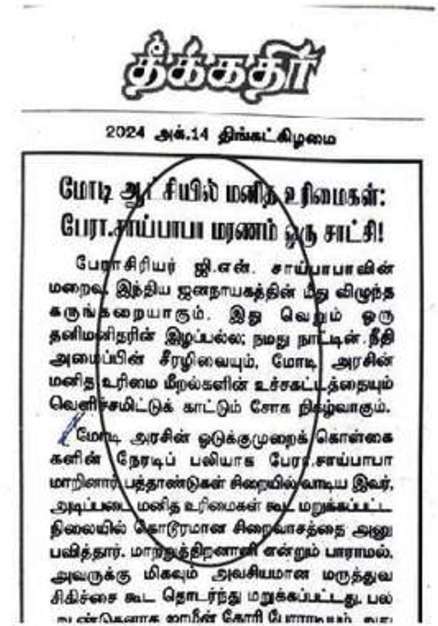 தீக்கதிர்
2024 அக்.14 திங்கட்கிழமை
மோடி ஆட்சியில் மனித உரிமைகள்:
பேரா.சாய்பாபா மரணம் ஒரு சாட்சி!
பேராசிரியர் ஜி.என். சாய்பாபாவின்
மறைவு, இந்திய ஜனநாயகத்தின் மீது விழுந்த
கருங்கறையாகும். இது வெறும் ஒரு
தனிமனிதரின் இழப்பல்ல; நமது நாட்டின் நீதி
அமைப்பின் சீரழிவையும், மோடி அரசின்
மனித உரிமை மீறல்களின் உச்சகட்டத்தையும்
வெளிச்சமிட்டுக் காட்டும் சோக நிகழ்வாகும்.
மோடி அரசின் ஒடுக்குமுறைக் கொள்கை
களின் நேரடிப் பலியாக பேரா.சாய்பாபா
மாறினார். பத்தாண்டுகள் சிறையில் வாடிய இவர்,
அடிப்படை மனித உரிமைகள் கூட மறுக்கப்பட்ட
நிலையில் கொடூரமான சிறைவாசத்தை அனு
பவித்தார். மாற்றுத்திறனாளி என்றும் பாராமல்,
அவருக்கு மிகவும் அவசியமான மருத்துவ
சிகிச்சை கூட தொடர்ந்து மறுக்கப்பட்டது. பல
ஆண்டுகளாக ஜாமீன் கோரி போராடியும்,